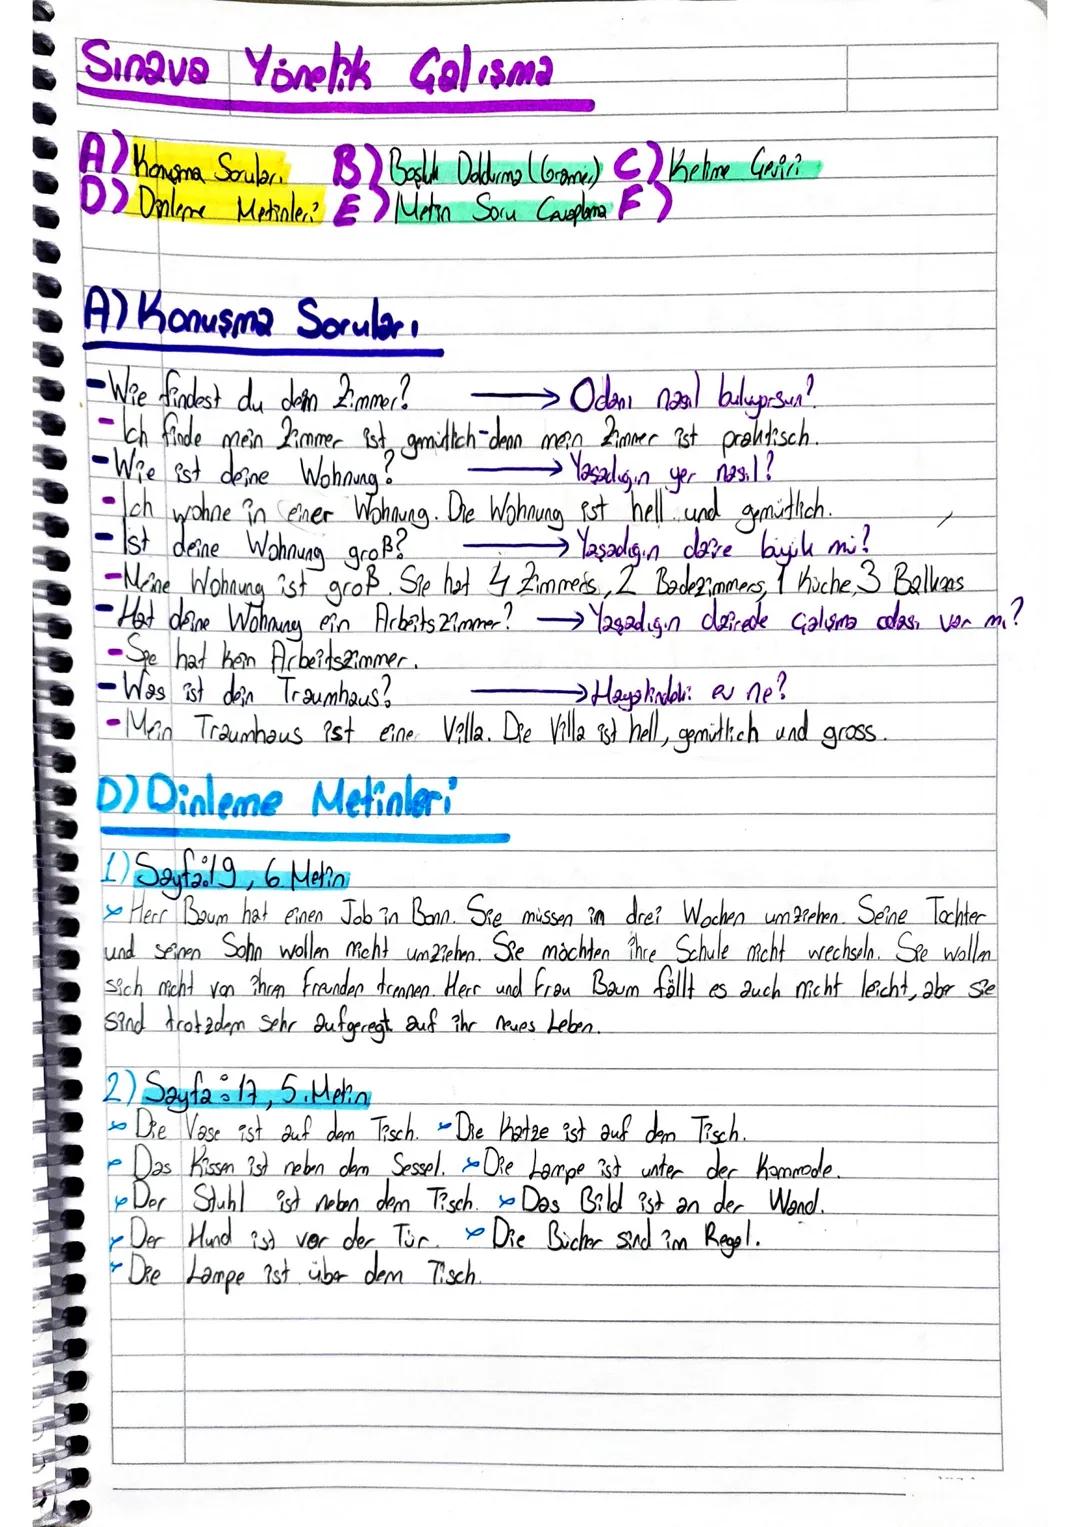 Sınava Yönelik Çalışma
A) Konuşma Soruları B) Boşluk Doldurma (Gramer) C) Kelime Çeviri
D) Dinleme Metinleri E) Metin Soru Cevaplama F)
A) Konuşma Soruları
- Wie findest du dein Zimmer? → Odanı nasıl buluyorsun?
- Ich finde mein Zimmer ist gemütlich-denn mein Zimmer ist praktisch.
- Wie ist deine Wohnung? → Yaşadığın yer nasıl?
- Ich wohne in einer Wohnung. Die Wohnung ist hell und gemütlich.
- Ist deine Wohnung groß? → Yaşadığın daire büyük mü?
- Meine Wohnung ist groß. Sie hat 4 Zimmers, 2 Badezimmers, 1 Küche, 3 Balkons
- Hat deine Wohnung ein Arbeitszimmer? → Yaşadığın dairede çalışma odası var mı?
- Sie hat kein Arbeitszimmer.
- Was ist dein Traumhaus? → Hayalindeki ev ne?
- Mein Traumhaus ist eine Villa. Die Villa ist hell, gemütlich und gross.
D) Dinleme Metinleri
1) Sayfa:19, 6. Metin
Herr Baum hat einen Job in Bonn. Sie müssen in drei Wochen umziehen. Seine Tochter
und seinen Sohn wollen nicht umziehen. Sie möchten ihre Schule nicht wechseln. Sie wollen
sich nicht von ihren Freunden trennen. Herr und Frau Baum fällt es auch nicht leicht, aber sie
sind trotzdem sehr aufgeregt auf ihr neues Leben.
2) Sayfa: 17, 5. Metin
Die Vase ist auf dem Tisch. Die Katze ist auf dem Tisch.
Das Kissen ist neben dem Sessel. Die Lampe ist unter der Kommode.
Der Stuhl ist neben dem Tisch. Das Bild ist an der Wand.
Der Hund ist vor der Tür. Die Bücher sind im Regal.
Die Lampe ist über dem Tisch.